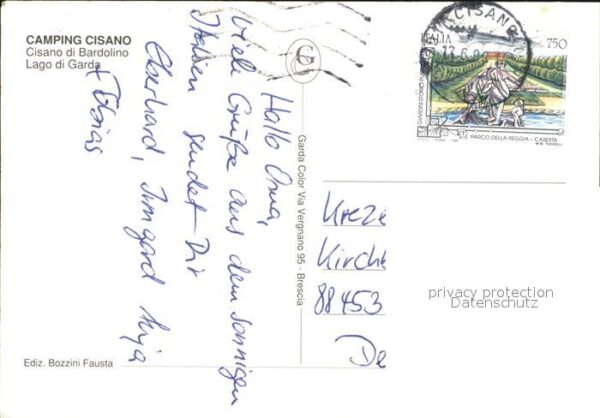 CAMPING CISANO
Cisano di Bardolino
Lago di Garda
Hallo Oma,
Viele Grüße aus dem sonnigen
Italien sendet Dir
Eberhard, Irmgard Anja
+ Tobias
Garda Color Via Vergnano 95 - Brescia
Ediz. Bozzini Fausta
CISANO
ITALIA
750
GIARDINI STORICI
PARCO DELLA REGGIA - CASERTA
Kreze
Kirchb
88453
(De
privacy protection
Datenschutz